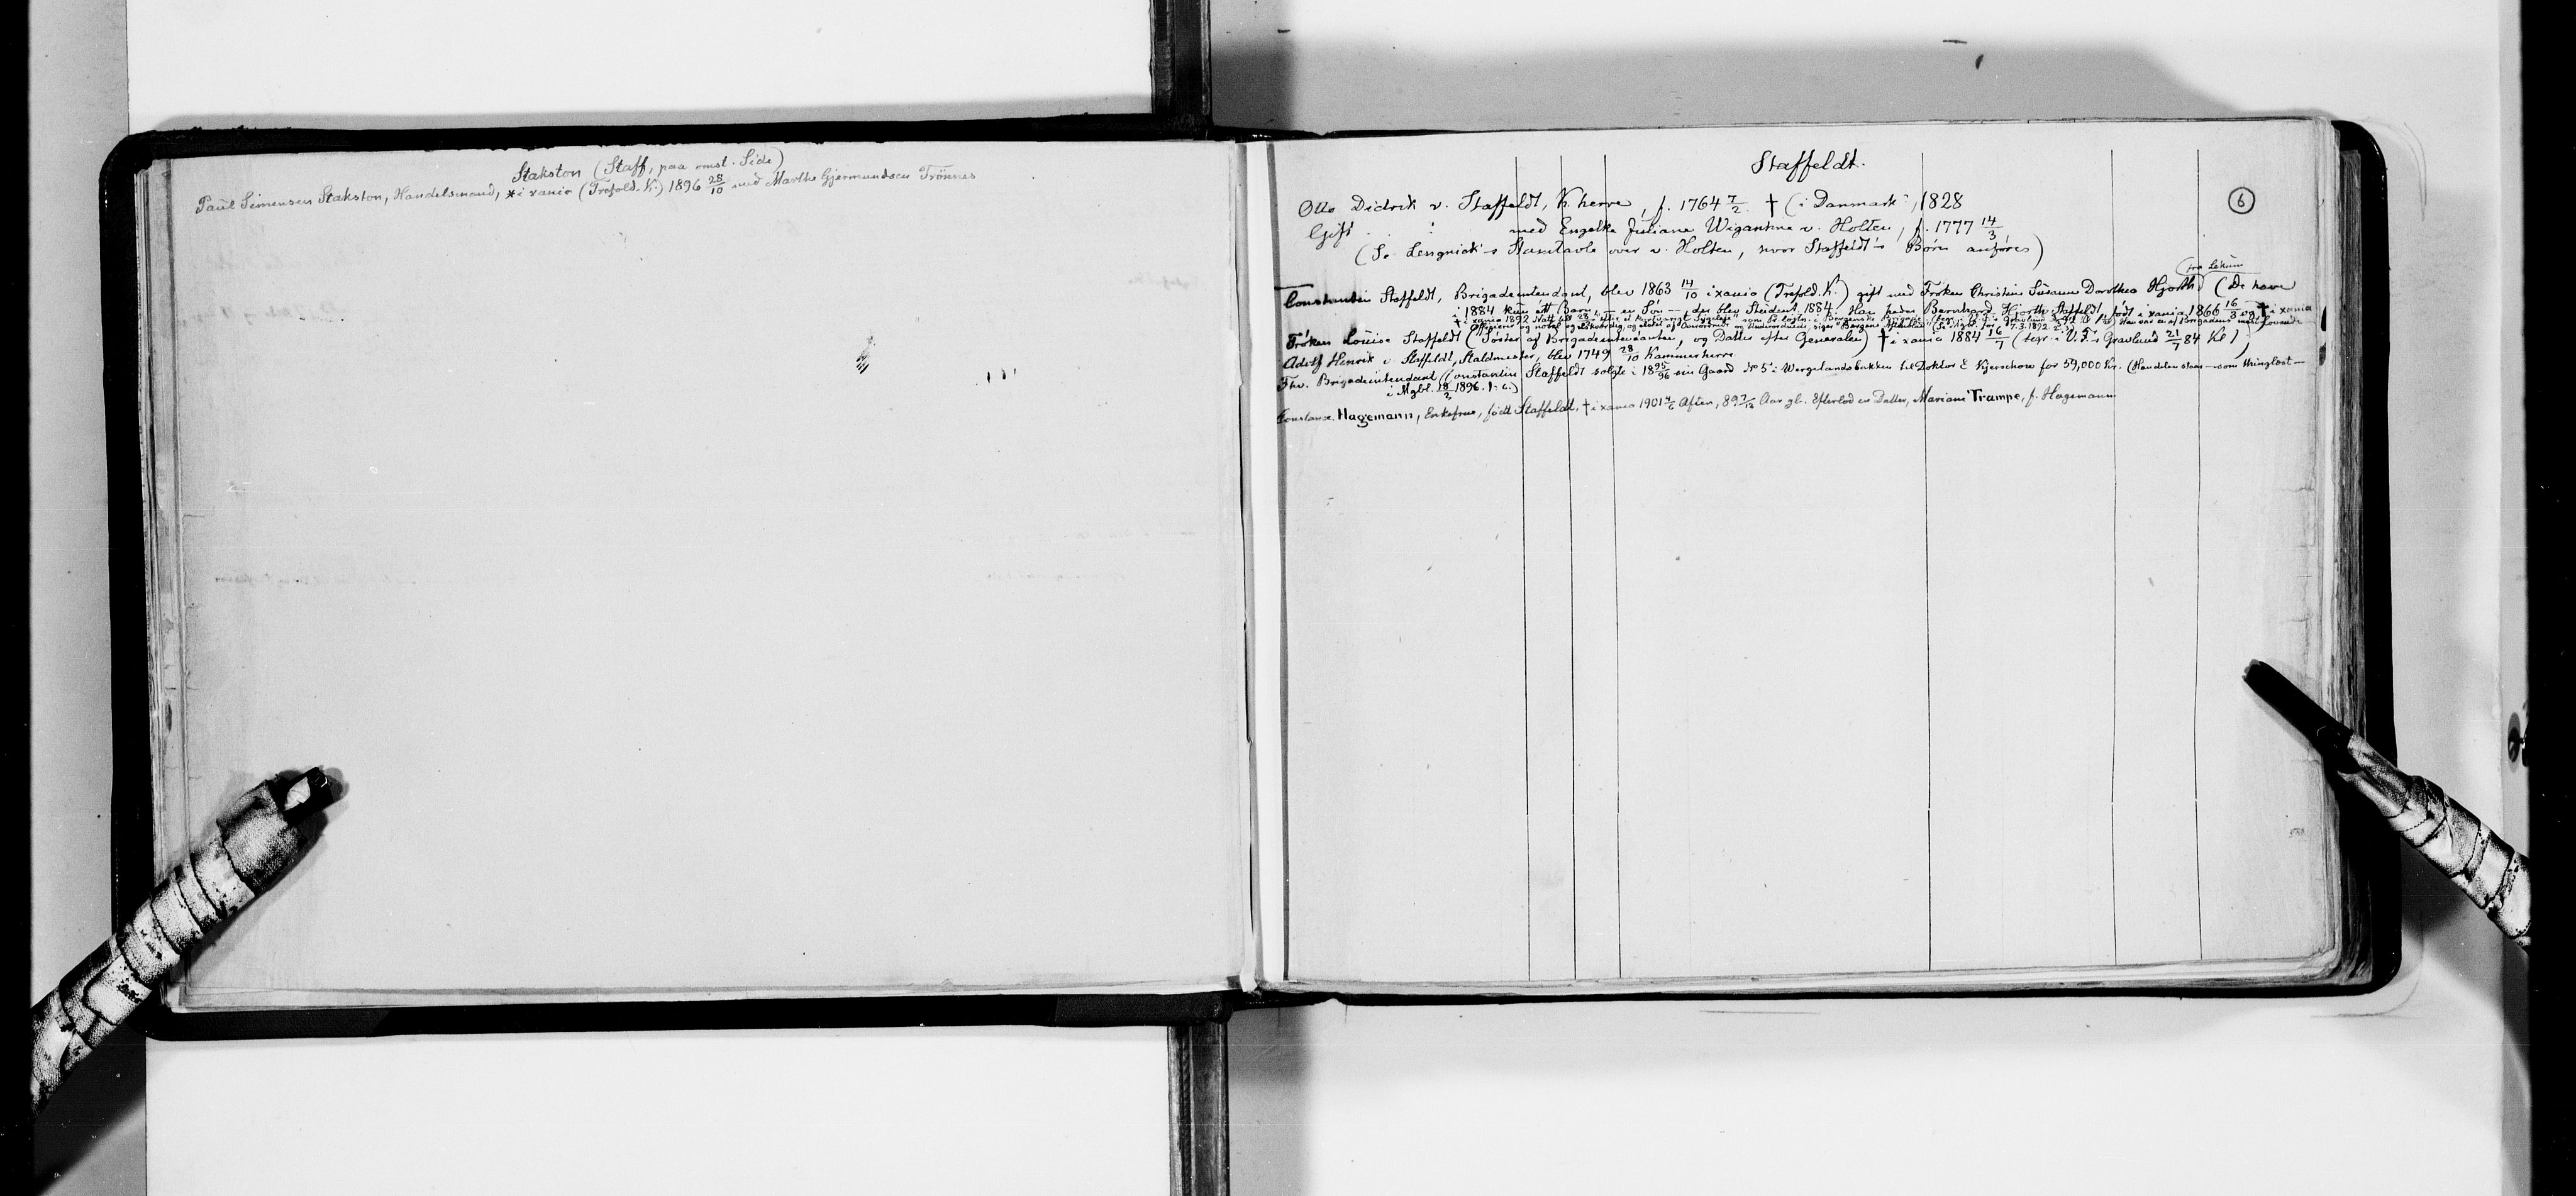 Stakston (Staff, paa modst. Side)
Paul Simensen Stakston, Handelsmand, * i xania (Trefold. K.) 1896 28/10 med Marthe Gjermundsen Trönnes
Staffeldt.
6
Otto Didrik v. Staffeldt, K.herre, f. 1764 7/2. † (i Danmark), 1828
Gift med Engelke Juliane Wigantine v. Holten, f. 1777 14/3
(Se Lengnick's Stamtavle over v. Holten, hvor Staffeldt's Börn anføres)
(fra Lekum
Constantin Staffeldt, Brigadeintendant, blev 1863 14/10 i xania (Trefold. K.) gift med Fröken Christine Susanne Dorothea Hjorth) (De have
i 1884 kun ett Barn, en Sön — der blev Student 1884. Han heder Bernhard Hjorth Staffeldt, født i xania 1866 16/3 og † i xania
† i xania 1892 Natt til
Officierer og nobel og elskværdig, og elsket af Overordnede og Underordnede, siger Bergens Aftenblad
Fröken Louise Staffeldt (Söster af Brigadeintendanten, og Datter efter Generalen) † i xania 1884 16/7 (begr. i V. F.s Gravlund 21/7 84 Kl 1)
Adolf Henrik v. Staffeldt, Staldmester, blev 1749 28/10 Kammerherre
Fhv. Brigadeintendant Constantin Staffeldt solgte i 1895/96 sin Gaard No 5 i Wergelandsbakken til Doktor E Kjerschow for 59,000 Kr. (Handelen staar — som thinglæst —
i Mgbl. 18/2 1896. 1. c.)
Constance Hagemann, Enkefrue, født Staffeldt, † i xania 1901 4/6 Aften, 89 7/12 Aar gl. Efterlod en Datter, Mariane Trampe, f. Hagemann